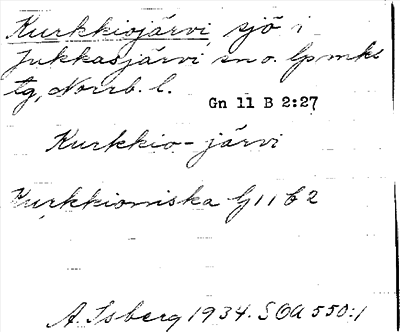 Kurkkiojärvi, sjö i
Jukkasjärvi sn o. lpmks
tg, Norrb. l.
Gn 11 B 2:27
Kurkkio-järvi
Kurkkioniska G 11 b 2
A. Isberg 1934. SOA 550:1